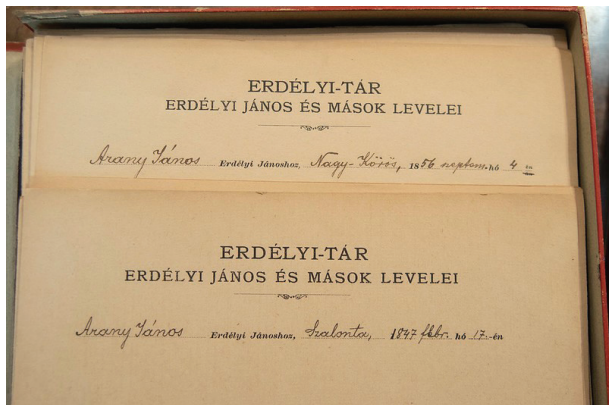 ERDÉLYI-TÁR
ERDÉLYI JÁNOS ÉS MÁSOK LEVELEI
Arany János Erdélyi Jánoshoz, Nagy-Körös, 1856 septem. hó 4 én
ERDÉLYI-TÁR
ERDÉLYI JÁNOS ÉS MÁSOK LEVELEI
Arany János Erdélyi Jánoshoz, Szalonta, 1847 febr. hó 17.-én